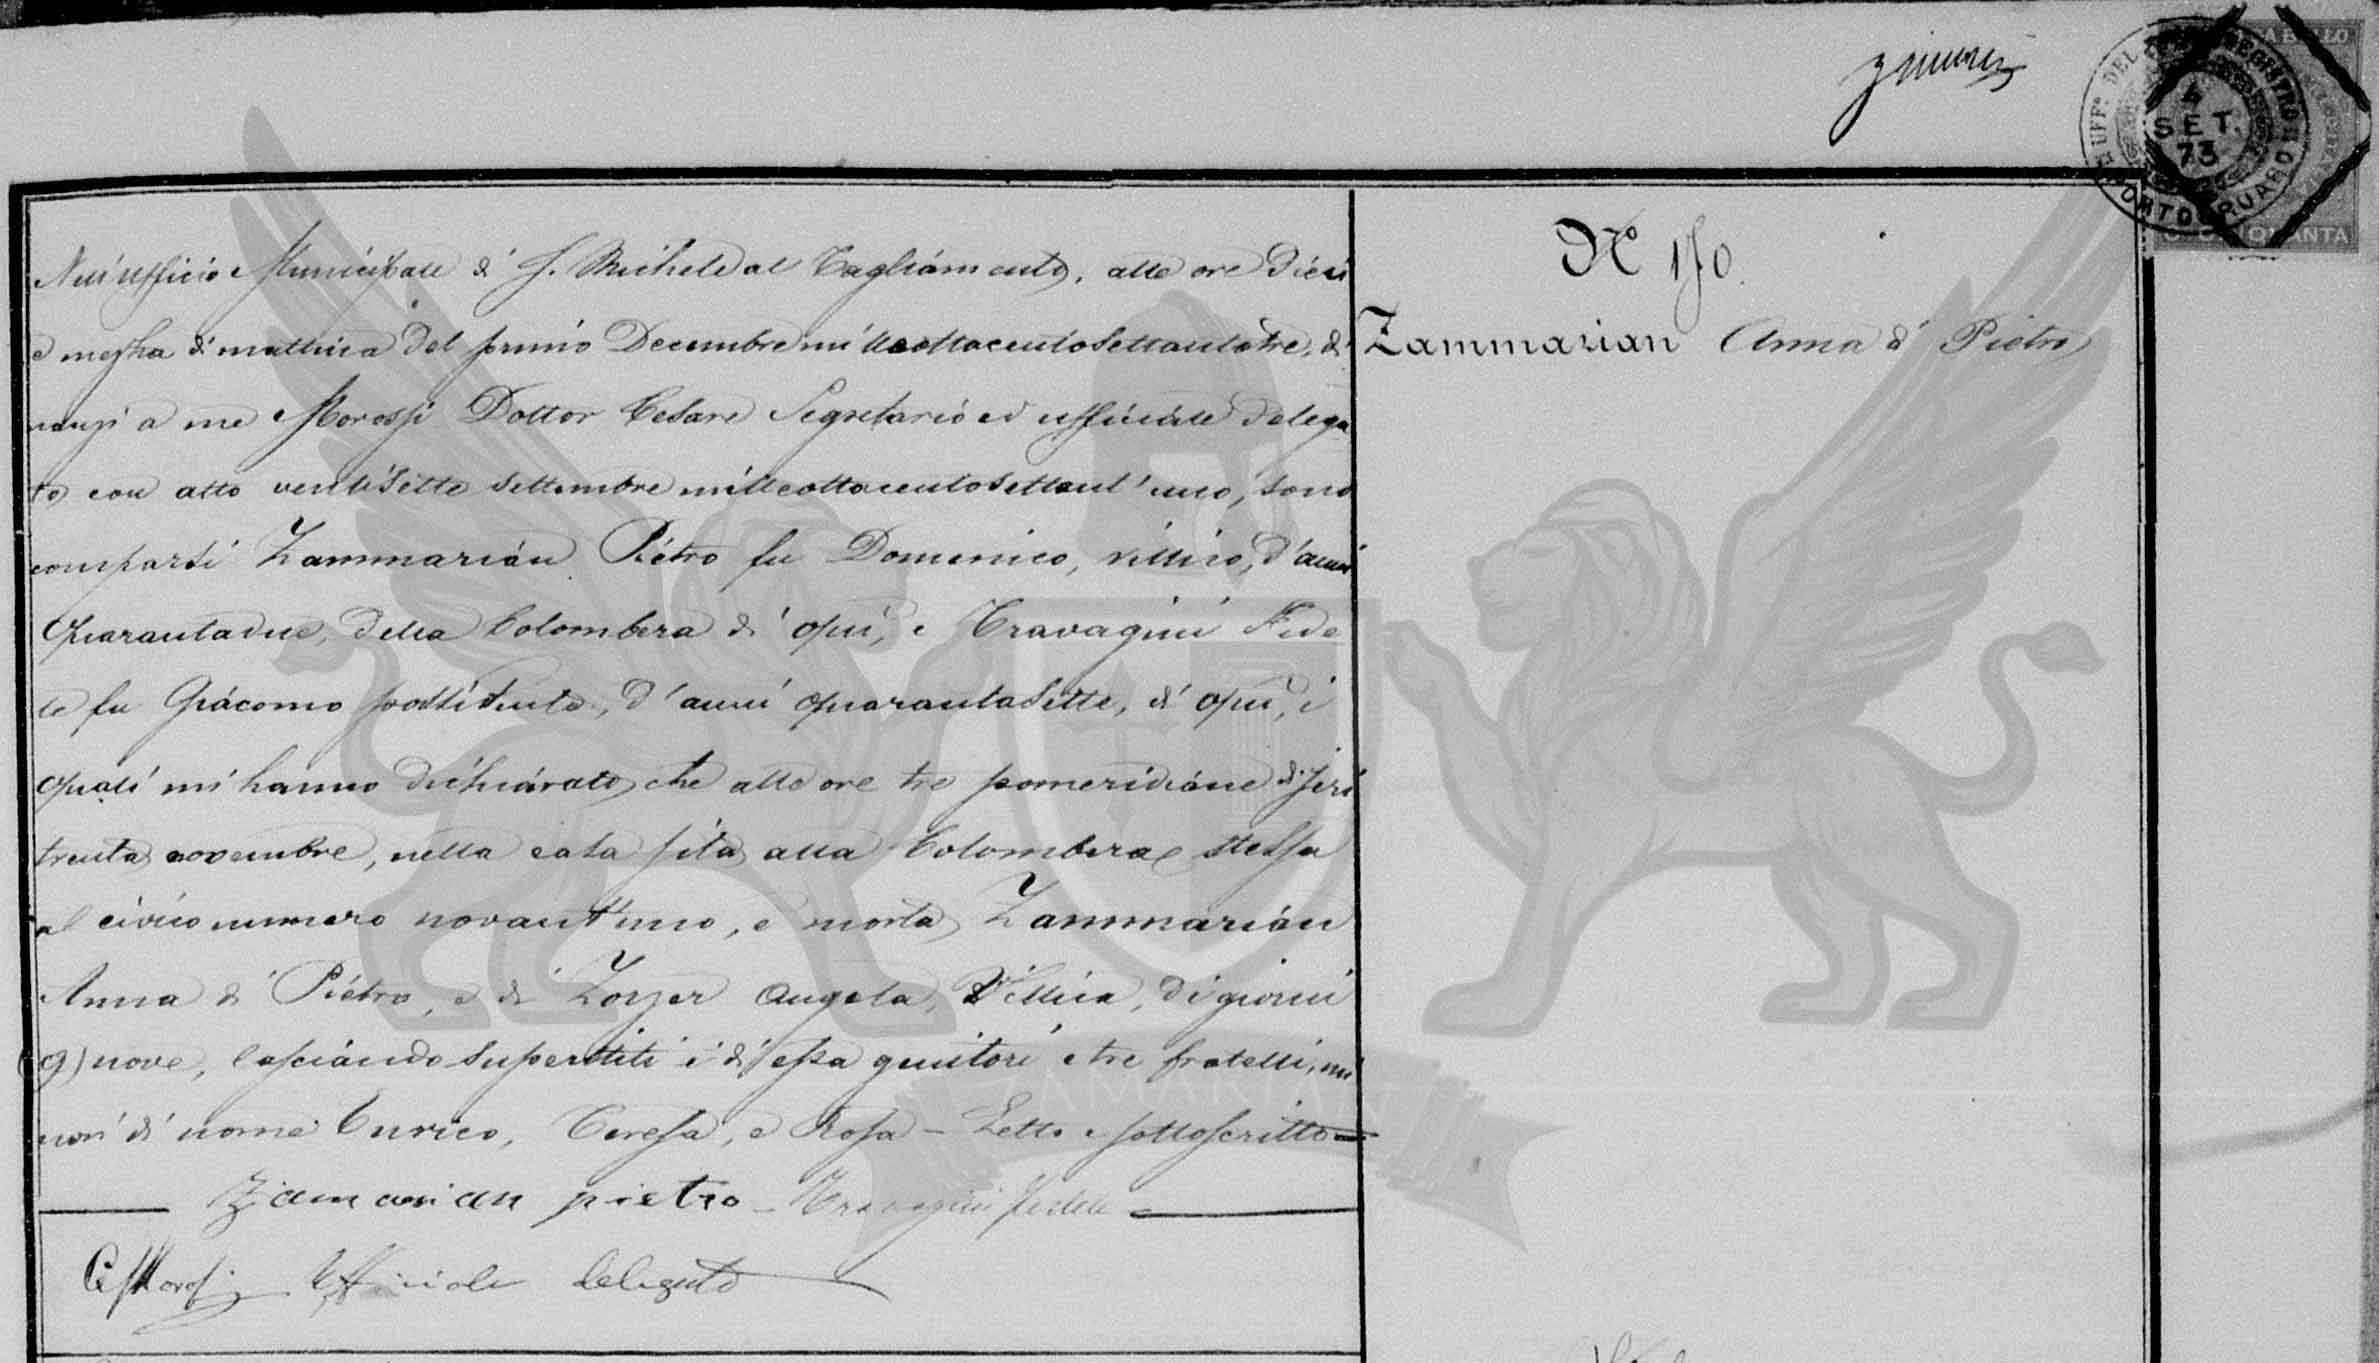 UFF° DEL REGISTRO
PORTOGRUARO
SET.
73
A BOLLO
CINQUANTA
N° 150.
Zammarian Anna di Pietro
Nell'ufficio Municipale di S. Michele al Tagliamento, alle ore dieci
e mezza di mattina del primo Decembre milleottocentosettantatre, di
nanzi a me Morossi Dottor Cesare Segretario ed ufficiale delega
to con atto ventisette settembre milleottocentosettant'uno, sono
comparsi Zammarian Pietro fu Domenico, villico, d'anni
quarantadue, della Colombera di qui, e Travagini Fede
le fu Giacomo possidente, d'anni quarantasette, di qui, i
quali mi hanno dichiarato che alle ore tre pomeridiane di jeri
trenta novembre, nella casa sita alla Colombera stessa
al civico numero novant'uno, è morta Zammarian
Anna di Pietro, e di Angela, Villica, di giorni
(9) nove, lasciando superstiti i di essa genitori e tre fratelli, mi
nori di nome Enrico, Teresa, e Rosa - Letto e sottoscritto
Zamarian pietro - Travagini fedele
C Morossi Ufficiale delegato
ZAMARIAN